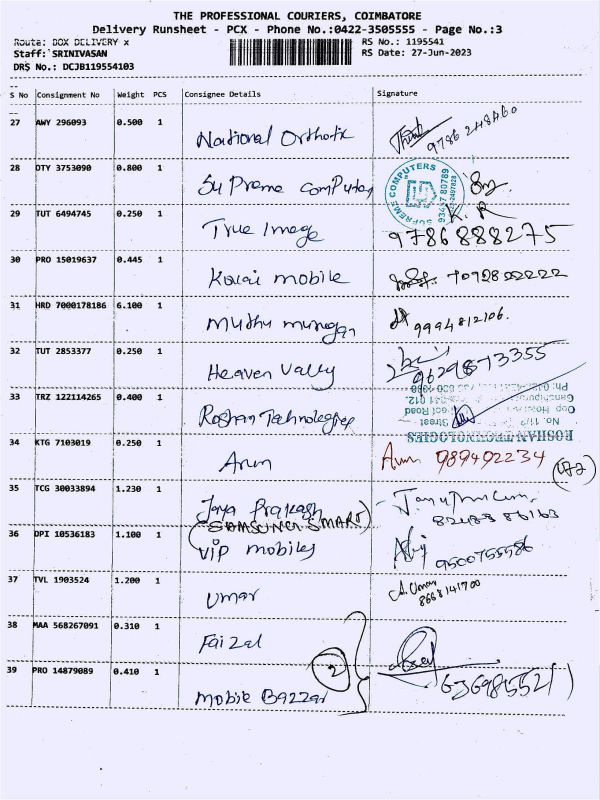 THE PROFESSIONAL COURIERS, COIMBATORE
Delivery Runsheet - PCX - Phone No.:0422-3505555 - Page No.:3
Route: BOX DELIVERY x
RS No.: 1195541
Staff: SRINIVASAN
RS Date: 27-Jun-2023
DRS No.: DCJB119554103
S No Consignment No Weight PCS Consignee Details Signature
27 AWY 296093 0.500 1 National Orthotic
9786248460
28 DTY 3753090 0.800 1 Supreme computer
SUPREME COMPUTERS
93447 80789
29 TUT 6494745 0.250 1 True Image
K. R
9786888275
30 PRO 15019637 0.445 1 Kovai mobile
7092822222
31 HRD 7000178186 6.100 1 Muthu murugan
9994812106.
32 TUT 2853377 0.250 1 Heaven Vally
9629873355
33 TRZ 122114265 0.400 1 Roshan Technologies
ROSHAN TECHNOLOGIES
34 KTG 7103019 0.250 1 Arun Arun 989492234
35 TCG 30033894 1.230 1 Jaya Prakash
(SAMSUNG SMART)
36 DPI 10536183 1.100 1 VIP mobiles
9500755586
37 TVL 1903524 1.200 1 Umar
A. Umar
8668141700
38 MAA 568267091 0.310 1 Faizal
2
39 PRO 14879089 0.410 1 Mobile Bazzar